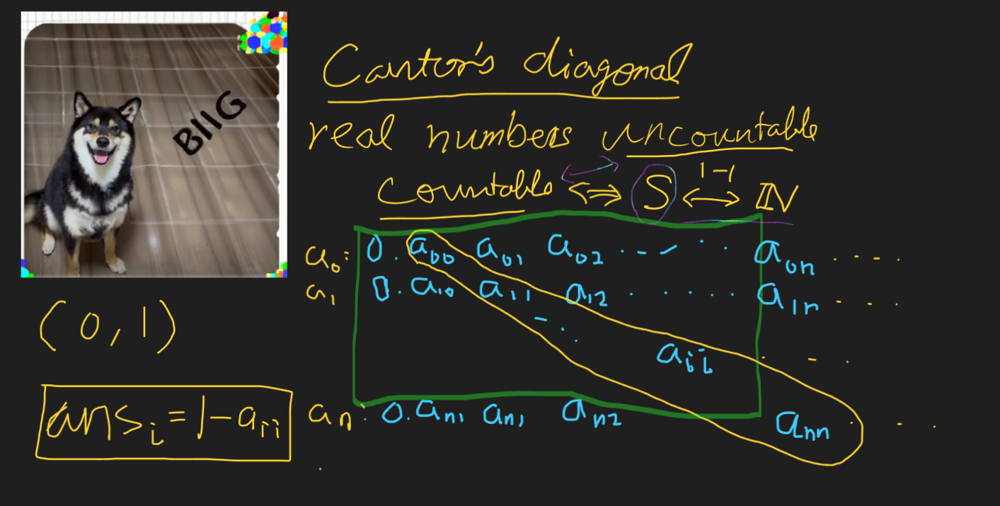 Cantor's diagonal
real numbers uncountable
Countable ⟺ S ⟷ 1-1 ℕ
BIIG
a₀: 0. a₀₀ a₀₁ a₀₂ ... a₀ₙ ....
a₁ 0. a₁₀ a₁₁ a₁₂ ..... a₁ₙ ...
aᵢᵢ
(0,1)
ansᵢ = 1-aᵢᵢ
aₙ: 0. aₙ₁ aₙ₁ aₙ₂ aₙₙ ...